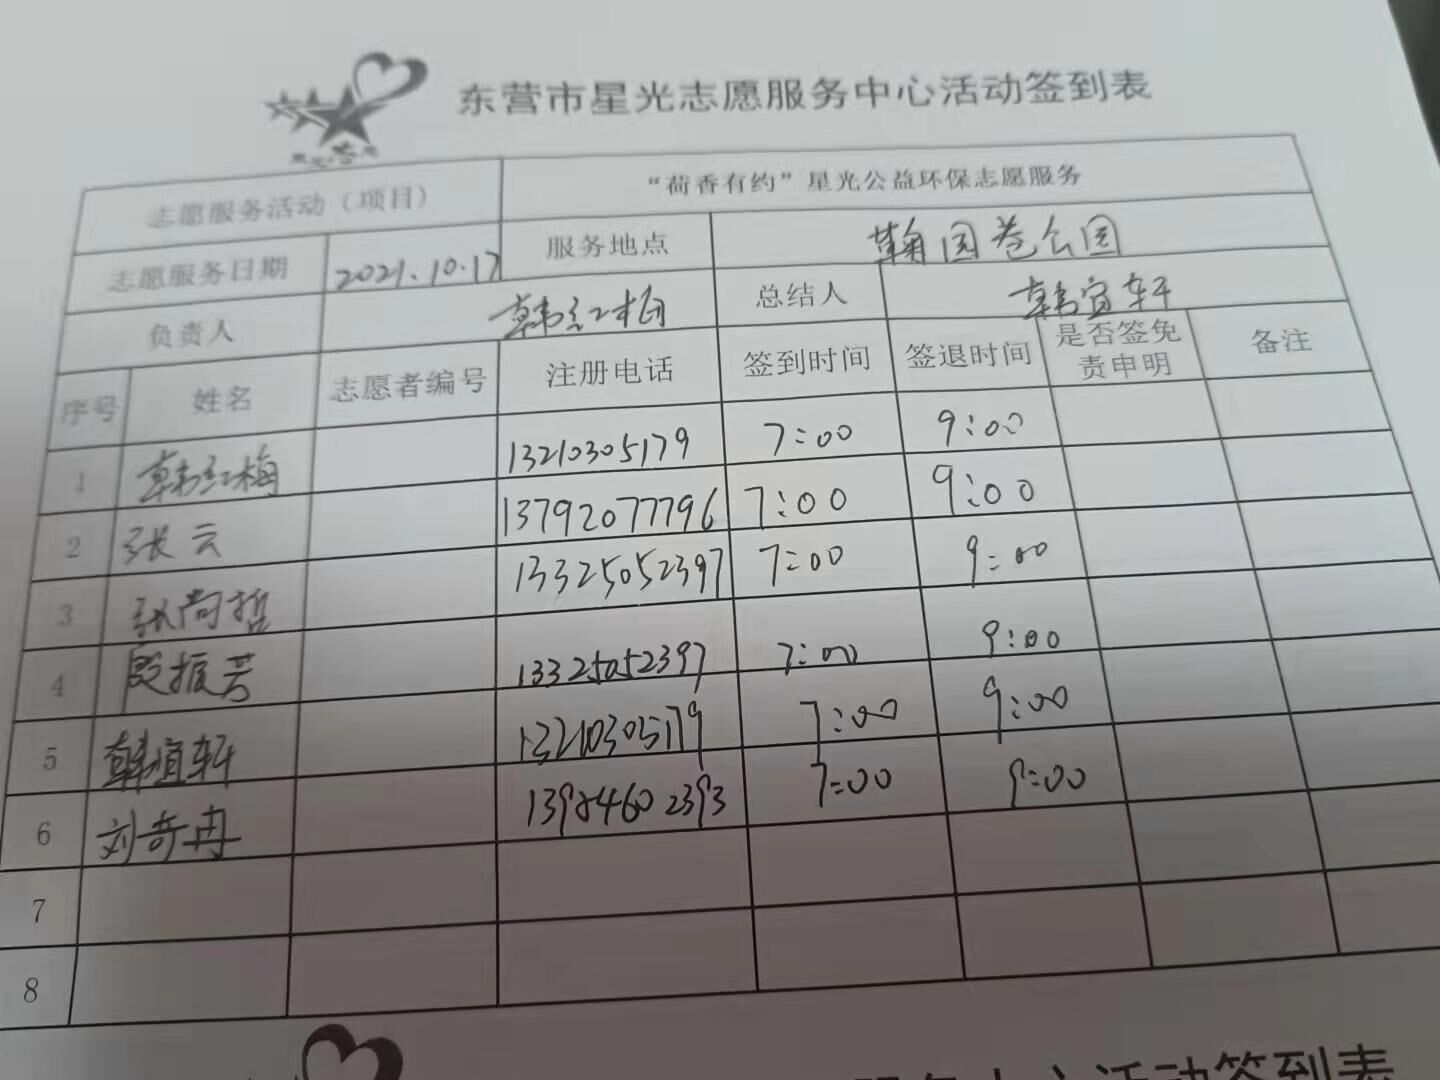 东营市星光志愿服务中心活动签到表
志愿服务活动（项目） “荷香有约”星光公益环保志愿服务
志愿服务日期 2021.10.17 服务地点 公园
负责人 韩红梅 总结人 韩宜轩
序号 姓名 志愿者编号 注册电话 签到时间 签退时间 是否签免责申明 备注
1 韩红梅 13210305179 7:00 9:00
2 张云 13792077796 7:00 9:00
3 张尚哲 13325052397 7:00 9:00
4 段振芳 13325052397 7:00 9:00
5 韩宜轩 13210305179 7:00 9:00
6 刘奇冉 7:00 9:00
7
8
活动签到表